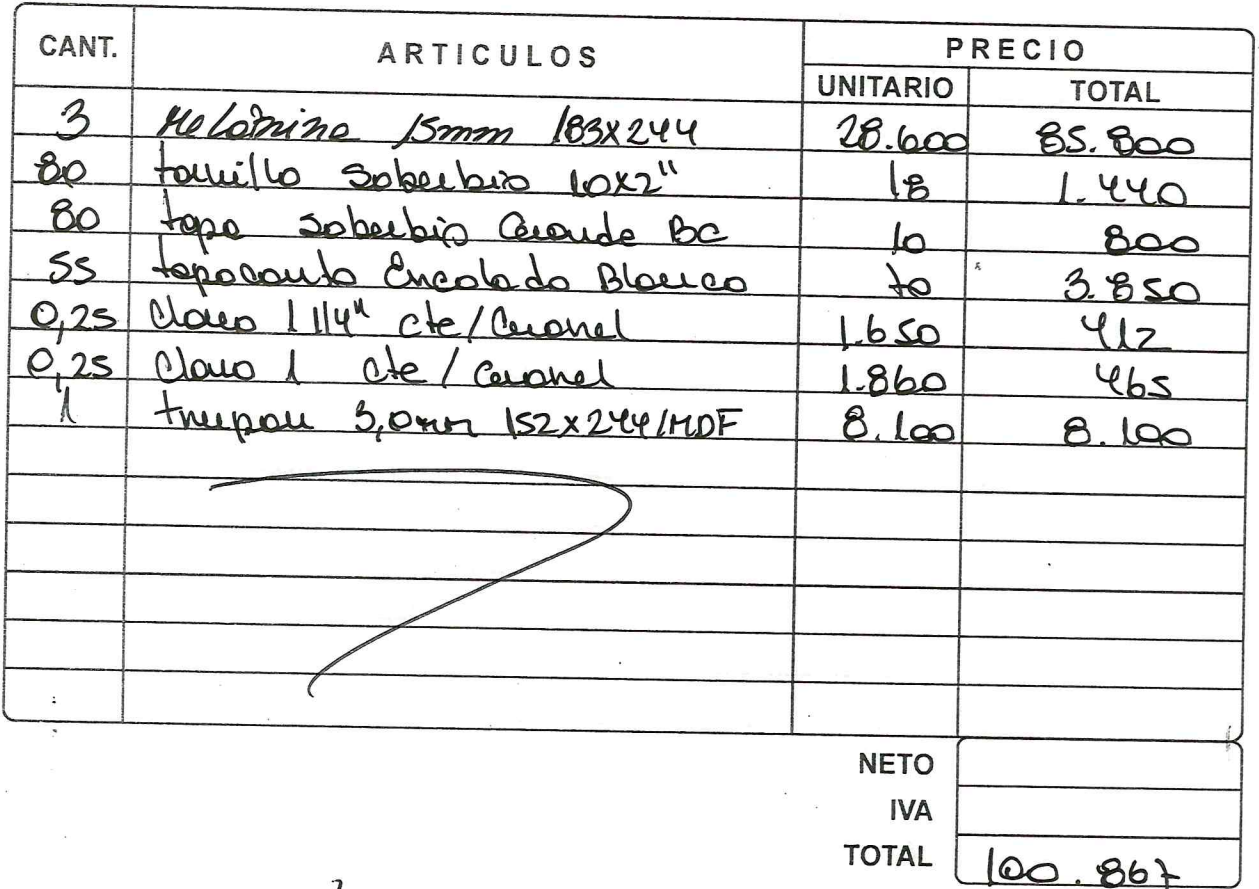 CANT. ARTICULOS PRECIO
UNITARIO TOTAL
3 Melamina 15mm 183x244 28.600 85.800
80 tornillo Soberbio 10x2" 18 1.440
80 tapa soberbio Grande BC 10 800
55 tapacanto Encolado Blanco 70 3.850
0,25 Clavo 1 1/4" cte/Granel 1.650 412
0,25 Clavo 1 cte/Granel 1.860 465
1 trupan 3,0mm 152x244/MDF 8.100 8.100
NETO
IVA
TOTAL 100.867